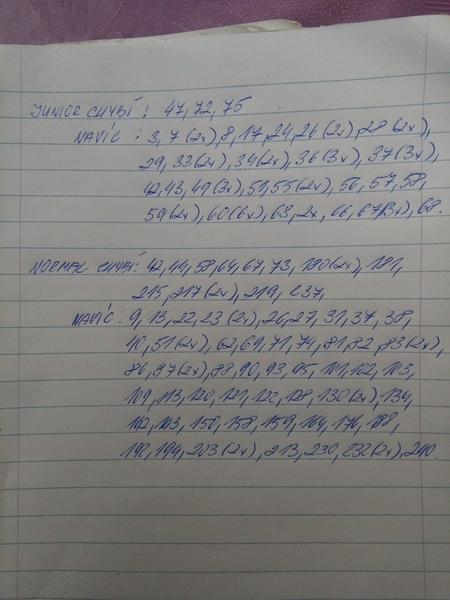 JUNIOR CHYBÍ: 47, 72, 75
NAVÍC: 3, 7 (2x), 8, 17, 24, 26 (2x), 28 (2x),
29, 33 (2x), 34 (2x), 36 (3x), 37 (3x),
42, 43, 49 (3x), 51, 55 (2x), 56, 57, 58,
59 (2x), 60 (6x), 63, 2x, 66, 67 (3x), 68.
NORMAL CHYBÍ: 42, 44, 58, 64, 67, 73, 180 (2x), 181,
215, 217 (2x), 219, 237,
NAVÍC: 9, 13, 22, 23 (2x), 26, 27, 31, 37, 38,
40, 51 (2x), 62, 69, 71, 74, 81, 82, 83 (2x),
86, 87 (2x), 88, 90, 93, 95, 101, 102, 103,
109, 113, 120, 121, 122, 128, 130 (2x), 134,
142, 143, 150, 158, 159, 164, 176, 188,
192, 194, 203 (2x), 213, 230, 232 (2x), 240.